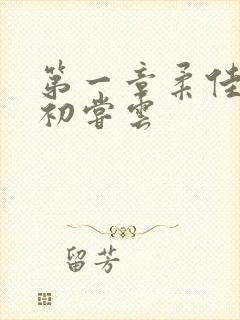 第一章柔佳
初尝雲
留芳